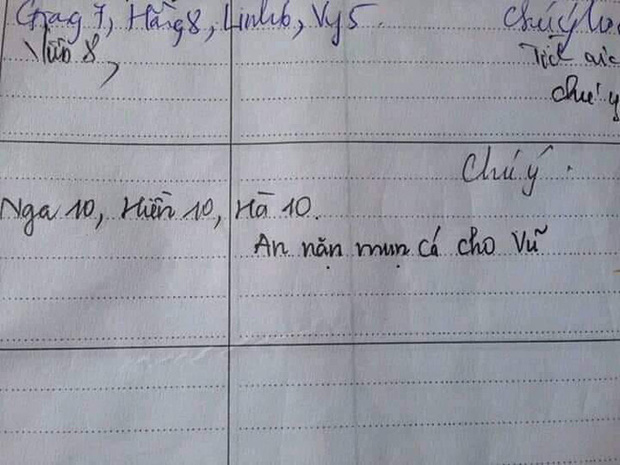 Giang 7, Hằng 8, Linh 6, Vy 5. Chú ý
Tích cực
chú ý
Chú ý.
Nga 10, Hiền 10, Hà 10.
An nặn mụn cá cho Vũ